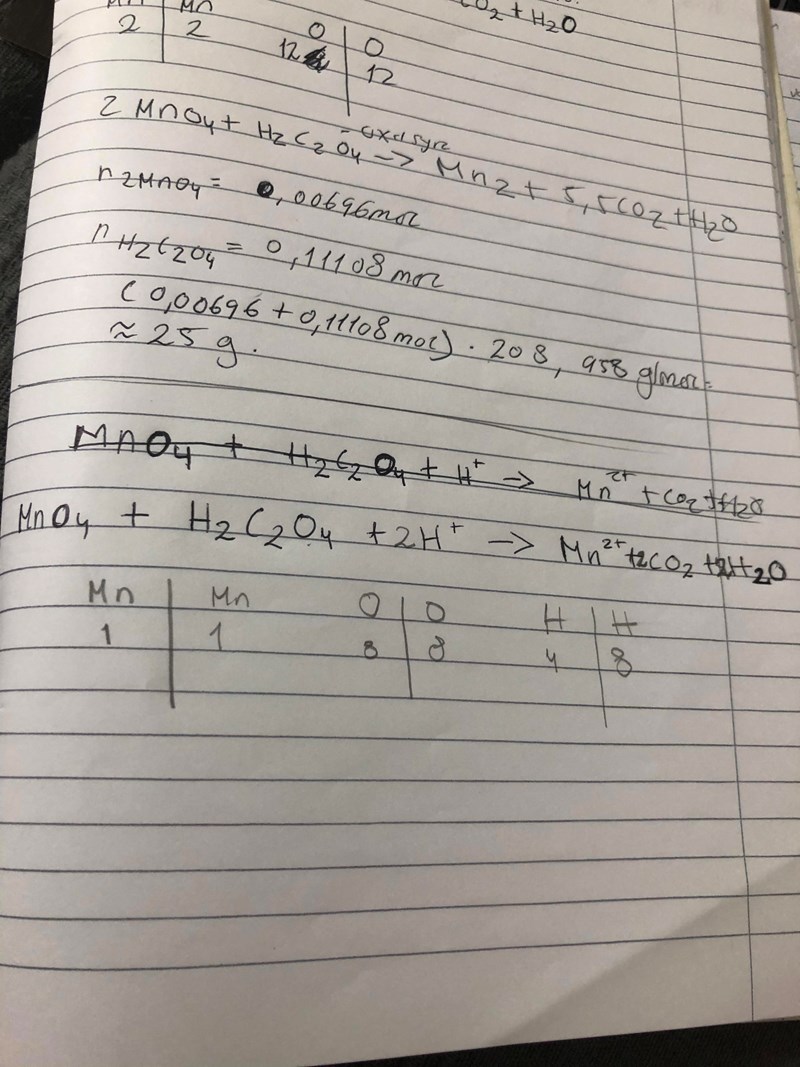 CO2 + H2O
Mn | Mn O | O
2 | 2 12 | 12
2 MnO4 + H2C2O4 -oxalsyre -> Mn2 + 5,5CO2 + H2O
n2MnO4 = 0,00696mol
nH2C2O4 = 0,11108 mol
(0,00696 + 0,11108mol) · 208, 958 g/mol =
≈ 25 g.
MnO4 + H2C2O4 + H+ -> Mn2+ + CO2 + H2O
MnO4 + H2C2O4 + 2H+ -> Mn2+ + 2CO2 + H2O
Mn | Mn O | O H | H
1 | 1 8 | 8 4 | 8